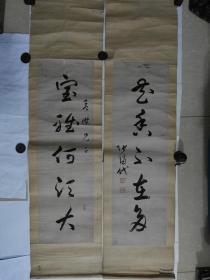 花香不在多
室雅何須大